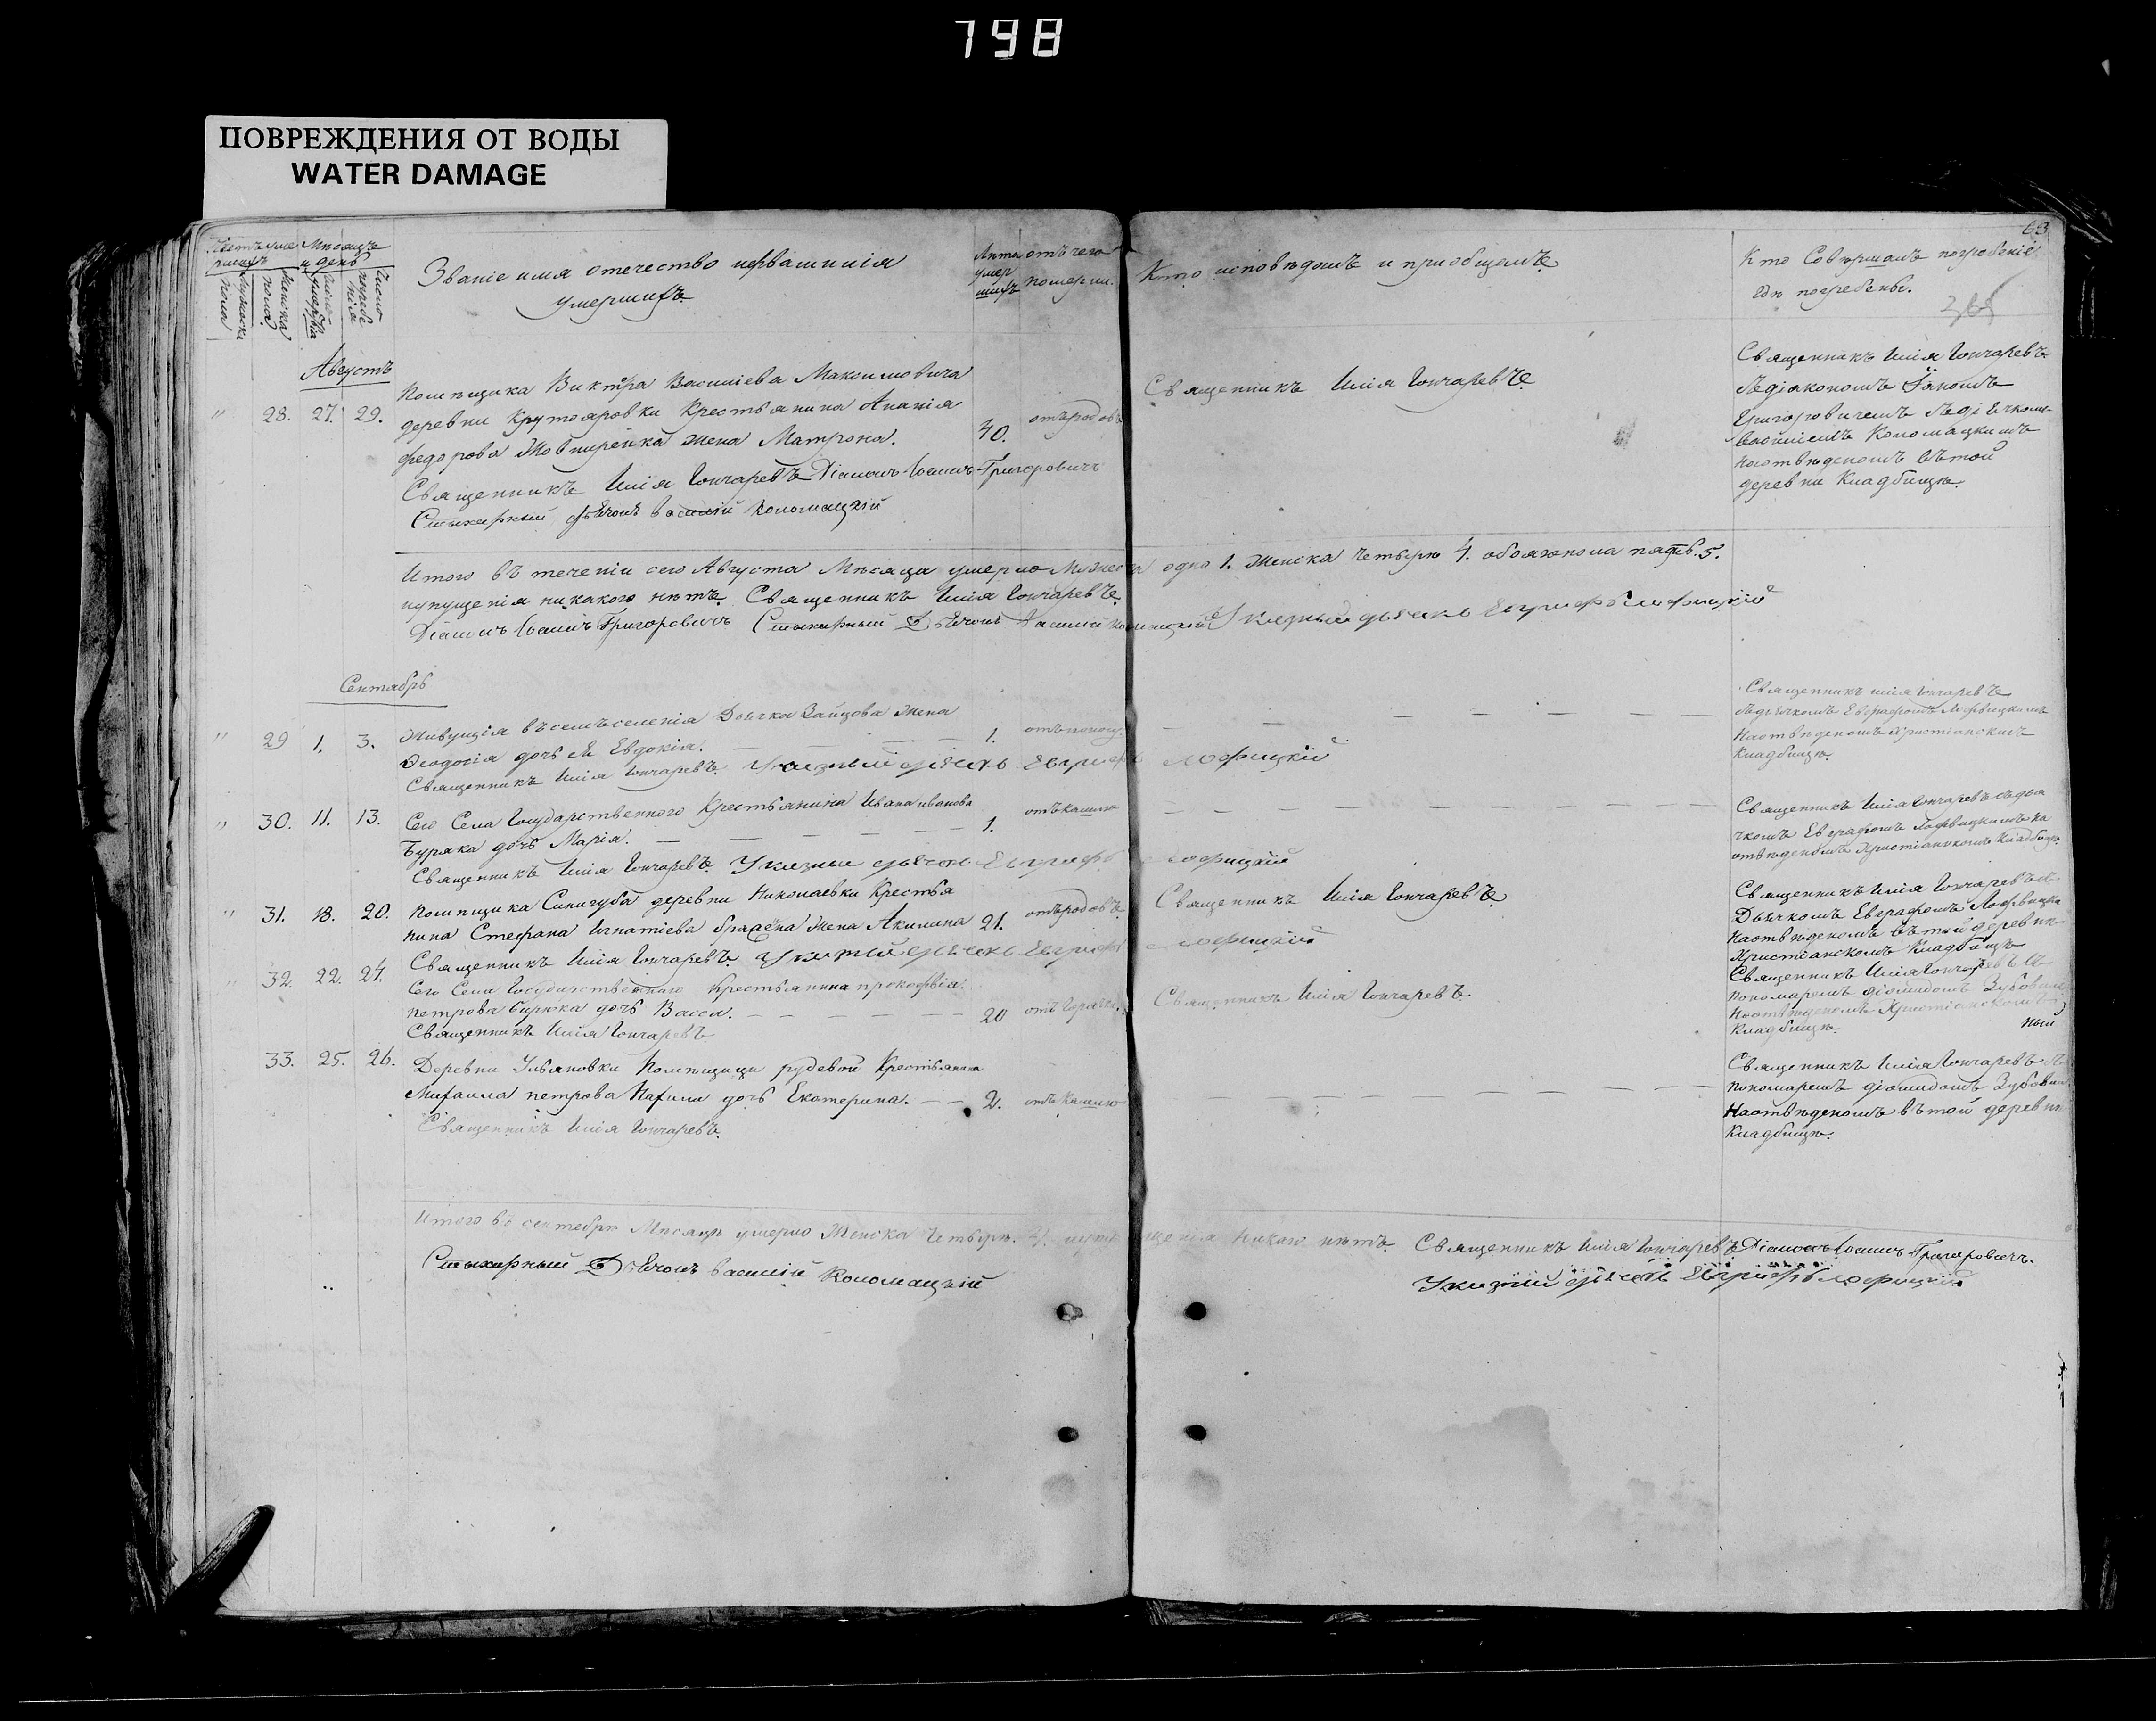 798
ПОВРЕЖДЕНИЯ ОТ ВОДЫ
WATER DAMAGE
63
Мѣсяцъ и день
Званіе имя отечество и фамилія
умершихъ
Лѣта умершихъ
отъ чего померли.
Кто исповѣдалъ и приобщалъ
Кто Совершалъ погребеніе
гдѣ погребены.
368
Августъ
28. 27. 29.
Помѣщика Виктора Василіева Максимовича
деревни Крутояровки Крестьянина Ананія
федорова жена Матрона. 40. отъ родовъ
Священникъ Илія Гончаревъ Діаконъ Іоаннъ Григоровичъ
дьячокъ Василій Коломацкій
Священникъ Илія Гончаревъ
Священникъ Илія Гончаревъ
съ діакономъ Іоаномъ
Григоровичемъ съ дьячкомъ
Василіемъ Коломацкимъ
на отведеномъ въ той
деревни Кладбищѣ.
Итого въ теченіи сего Августа Мѣсяца умерло Мужеска одно 1. Женска четыре 4. обоего пола пять. 5.
пущенія никакого нѣтъ. Священникъ Илія Гончаревъ
Діаконъ Іоаннъ Григоровичъ дьячокъ Василій Коломацкій Указный дьячокъ Евграфъ Лофицкій
Сентябрь
29 1. 3.
Живущія въ семъ селенія Дьячка Зайцова Жена
Феодосія дочь ея Евдокія. 1.
Священникъ Илія Гончаревъ. Указный дьячокъ Евграфъ Лофицкій
Священникъ Илія Гончаревъ
съ дьячкомъ Евграфомъ Лофицкимъ
На отведеномъ Христіанскомъ
Кладбищѣ.
30. 11. 13.
Сего Села Государственного Крестьянина Ивана иванова
Буряка дочь Марія. 1. отъ кашлю
Священникъ Илія Гончаревъ. Указный дьячокъ Евграфъ Лофицкій
Священникъ Илія Гончаревъ съ дья
чкомъ Евграфомъ Лофицкимъ на
отведеномъ Христіанскомъ Кладбищѣ.
31. 18. 20.
Помѣщика Синигуба деревни Николаевки Крестья
нина Стефана Игнатіева Жена Акилина 21. отъ родовъ
Священникъ Илія Гончаревъ. Указный дьячокъ Евграфъ Лофицкій
Священникъ Илія Гончаревъ
Священникъ Илія Гончаревъ съ
Дьячкомъ Евграфомъ Лофицким
На отведеномъ въ той деревнѣ
Христіанскомъ Кладбищѣ
32. 22. 24.
Сего Села Государственаго Крестьянина прокофія
петрова Бирюка дочь Васса. 20
Священникъ Илія Гончаревъ
Священникъ Илія Гончаревъ
Священникъ Илія Гончаревъ съ
пономаремъ діомидомъ
На отведеномъ Христіанскомъ
Кладбищѣ.
33. 25. 26.
Деревни Ульяновки Помѣщицы рудевой Крестьянина
Михаила петрова дочь Екатерина. 2. отъ кашлю
Священникъ Илія Гончаревъ.
Священникъ Илія Гончаревъ съ
пономаремъ діомидомъ
На отведеномъ въ той деревнѣ
Кладбищѣ.
Итого въ сентебрѣ Мѣсяцѣ умерло Женска никаго нѣтъ. Священникъ Илія Гончаревъ Діаконъ Іоаннъ Григоровичъ.
дьячокъ Василій Коломацкій Указный дьячокъ Евграфъ Лофицкій